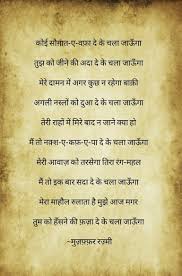 कोई सौग़ात-ए-वफ़ा दे के चला जाऊँगा
तुझ को जीने की अदा दे के चला जाऊँगा
मेरे दामन में अगर कुछ न रहेगा बाक़ी
अगली नस्लों को दुआ दे के चला जाऊँगा
तेरी राहों में मिरे बाद न जाने क्या हो
मैं तो नक़्श-ए-कफ़-ए-पा दे के चला जाऊँगा
मेरी आवाज़ को तरसेगा तिरा रंग-महल
मैं तो इक बार सदा दे के चला जाऊँगा
मेरा माहौल रुलाता है मुझे आज मगर
तुम को हँसने की फ़ज़ा दे के चला जाऊँगा
~मुज़फ़्फ़र रज़्मी